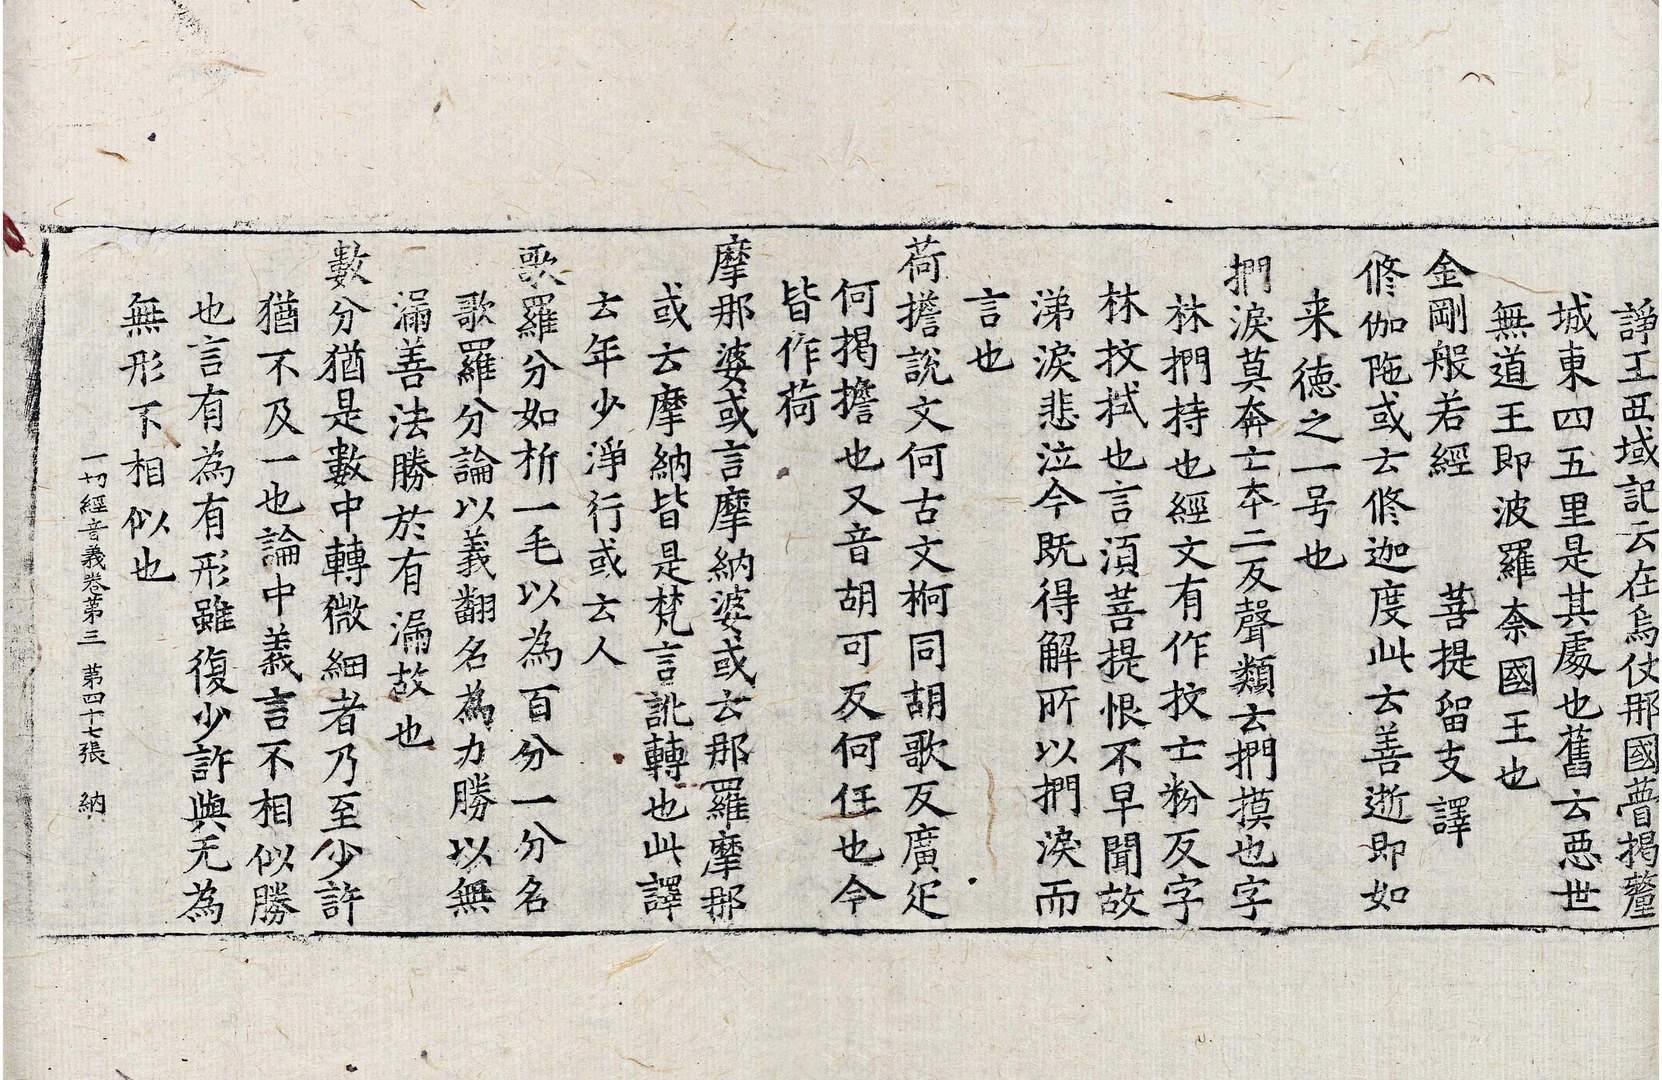 諍王西域記云在烏仗那國瞢揭釐
城東四五里是其處也舊云惡世
無道王即波羅柰國王也
金剛般若經 菩提留支譯
修伽陁或云修迦度此云善逝即如
来徳之一号也
捫淚莫奔亡夲二反聲類云捫摸也字
林捫持也經文有作抆亡粉反字
林抆拭也言湏菩提恨不早聞故
涕淚悲泣今既得解所以捫淚而
言也
荷擔說文何古文柯同胡歌反廣疋
何揭擔也又音胡可反何任也今
皆作荷
摩那婆或言摩納婆或云那羅摩那
或云摩納皆是梵言訛轉也此譯
云年少淨行或云人
歌羅分如析一毛以為百分一分名
歌羅分論以義翻名為力勝以無
漏善法勝於有漏故也
數分猶是數中轉微細者乃至少許
猶不及一也論中義言不相似勝
也言有為有形雖復少許與无為
無形下相似也
一切經音義卷第三 第四十七張 納